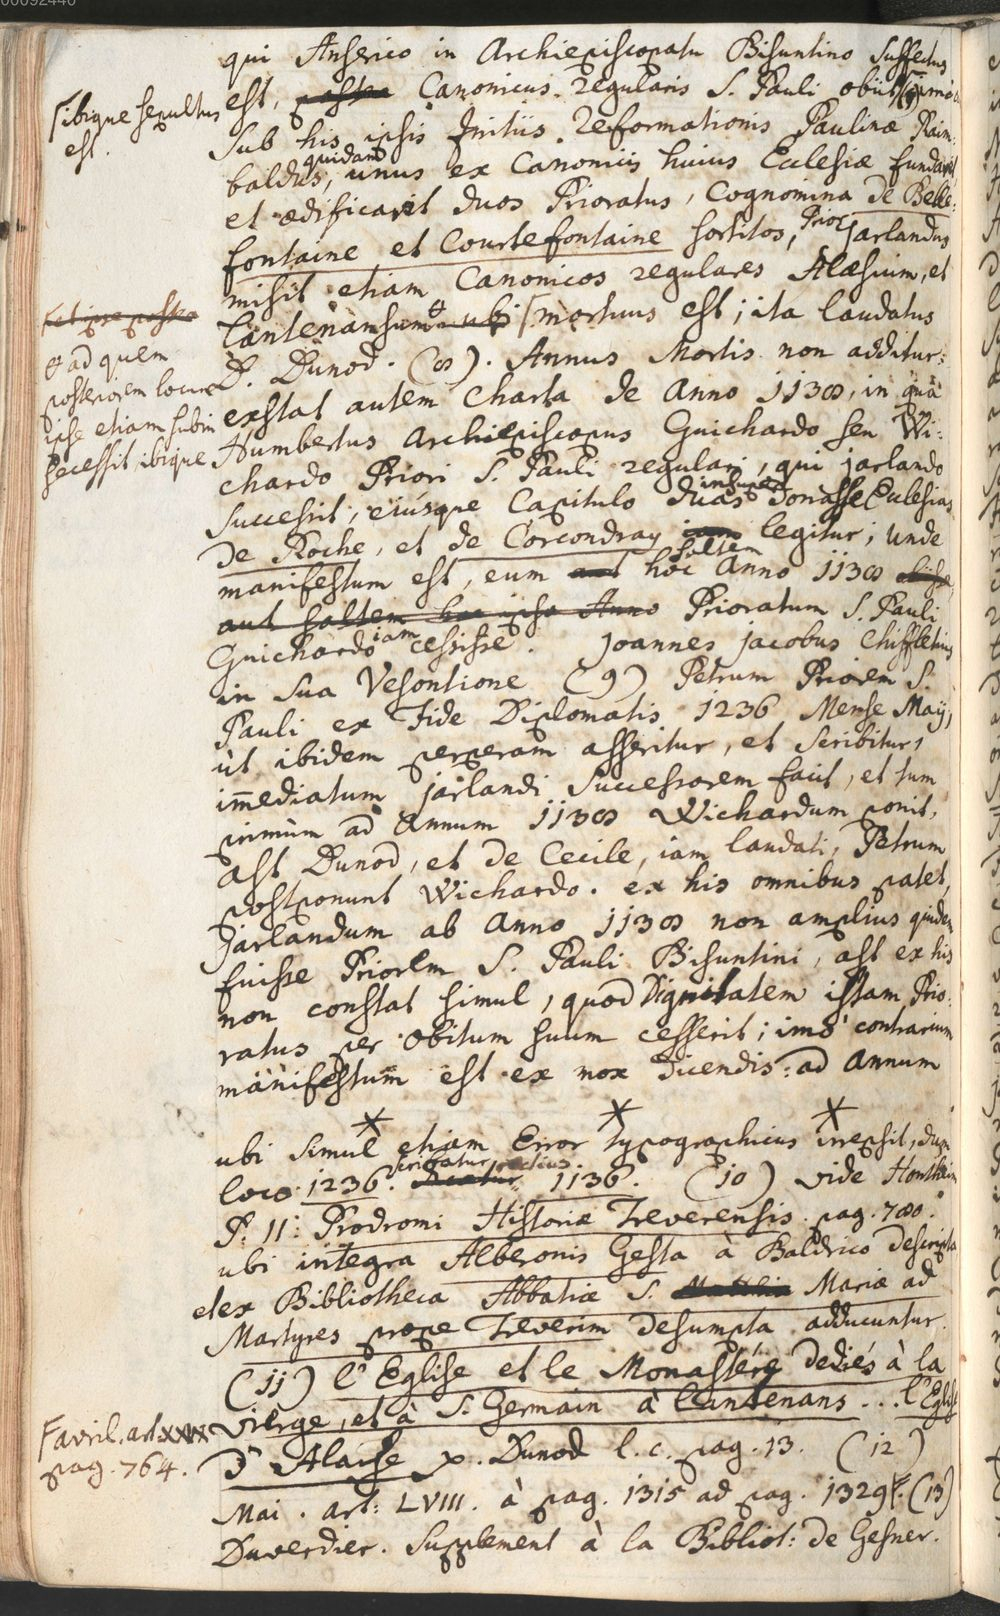 00092440
qui Anserico in Archiepiscopatu Bisuntino Suffectus
est, postea Canonicus regularis S. Pauli obiit
ſibique sepultus
est.
Sub his ipsis Initiis Reformationis Paulinæ Raim:
baldus, quidam unus ex Canonicis huius Eclesiæ fundavit,
et ædificavit duos Prioratus, Cognomina de Belle:
fontaine et Courtefontaine sortitos, Prior jarlandus
misit etiam Canonicos regulares Alæsium, et
Lantenansum & ubi ſmortuus est; ita laudatus
ſet ipse postea
& ad quem
posteriorem locum
ipse etiam subin
secessit, ibique
D. Dunod. (8). Annus Mortis non additur:
exstat autem Charta de Anno 1138, in quâ
Humbertus Archiepiscopus Guichardo seu Wi:
chardo Priori S. Pauli regulari, qui jarlando
Successit, eiúsque Capitulo duas insuper donasse Eclesias
De Roche, et de Corcondray legitur; unde
manifestum est, eum aut saltem hoc Anno 1138
aut saltem hoc ipso Anno Prioratum S. Pauli
Guichardo iam cessisse. Joannes jacobus Chiffletius
in sua Vesontione (9) Petrum Priorem S.
Pauli ex Fide Diplomatis 1236 Mense Maij,
ùt ibidem perperam asseritur, et scribitur,
im̄ediatum jarlandi Successorem facit, et tum
primùm ad Annum 1138 Wichardum ponit,
ast Dunod, et de Cecile, iam laudati, Petrum
postponunt Wichardo. ex his omnibus patet,
Jarlandum ab Anno 1138 non amplius quidem
fuisse Priorem S. Pauli Bisuntini, ast ex his
non constat simul, quod Dignitatem istam Prio:
ratus per obitum suum cesserit; imò contrarium
manifestum est ex mox dicendis: ad Annum
ubi simul etiam Error typographicus irrepsit, dum
loco 1236. scribatur rectius 1136. (10) vide Hontheim
P. 11: Prodromi Historiæ Treverensis pag. 780.
ubi integra Alberonis Gesta à Baldrico descripta
et ex Bibliotheca Abbatiæ S. Mariæ ad
Martyres prope Treverim desumpta adducuntur.
(11) l'Eglise et le Monastére dediés à la
vierge, et à S. Germain à Lantenans... l'Eglise
d'Alaise p. Dunod l. c. pag. 13. (12)
ſavril. art.
pag. 764.
Mai. art: LVIII. à pag. 1315 ad pag. 1329ſ. (13)
Duverdier. Supplement à la Bibliot: de Gesner.